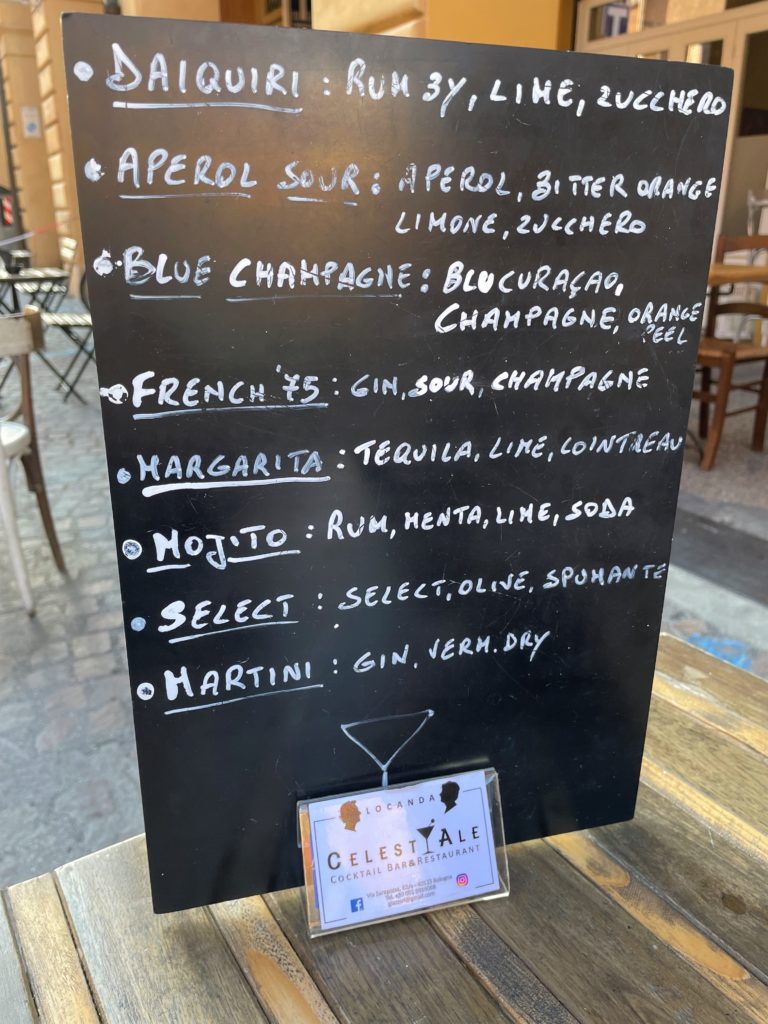 • DAIQUIRI : RUM 3Y, LIME, ZUCCHERO
• APEROL SOUR : APEROL, BITTER ORANGE
LIMONE, ZUCCHERO
• BLUE CHAMPAGNE : BLUCURAÇAO,
CHAMPAGNE, ORANGE
PEEL
• FRENCH '75 : GIN, SOUR, CHAMPAGNE
• MARGARITA : TEQUILA, LIME, COINTREAU
• MOJITO : RUM, MENTA, LIME, SODA
• SELECT : SELECT, OLIVE, SPUMANTE
• MARTINI : GIN, VERM. DRY
LOCANDA
CELESTYALE
COCKTAIL BAR&RESTAURANT
Bologna